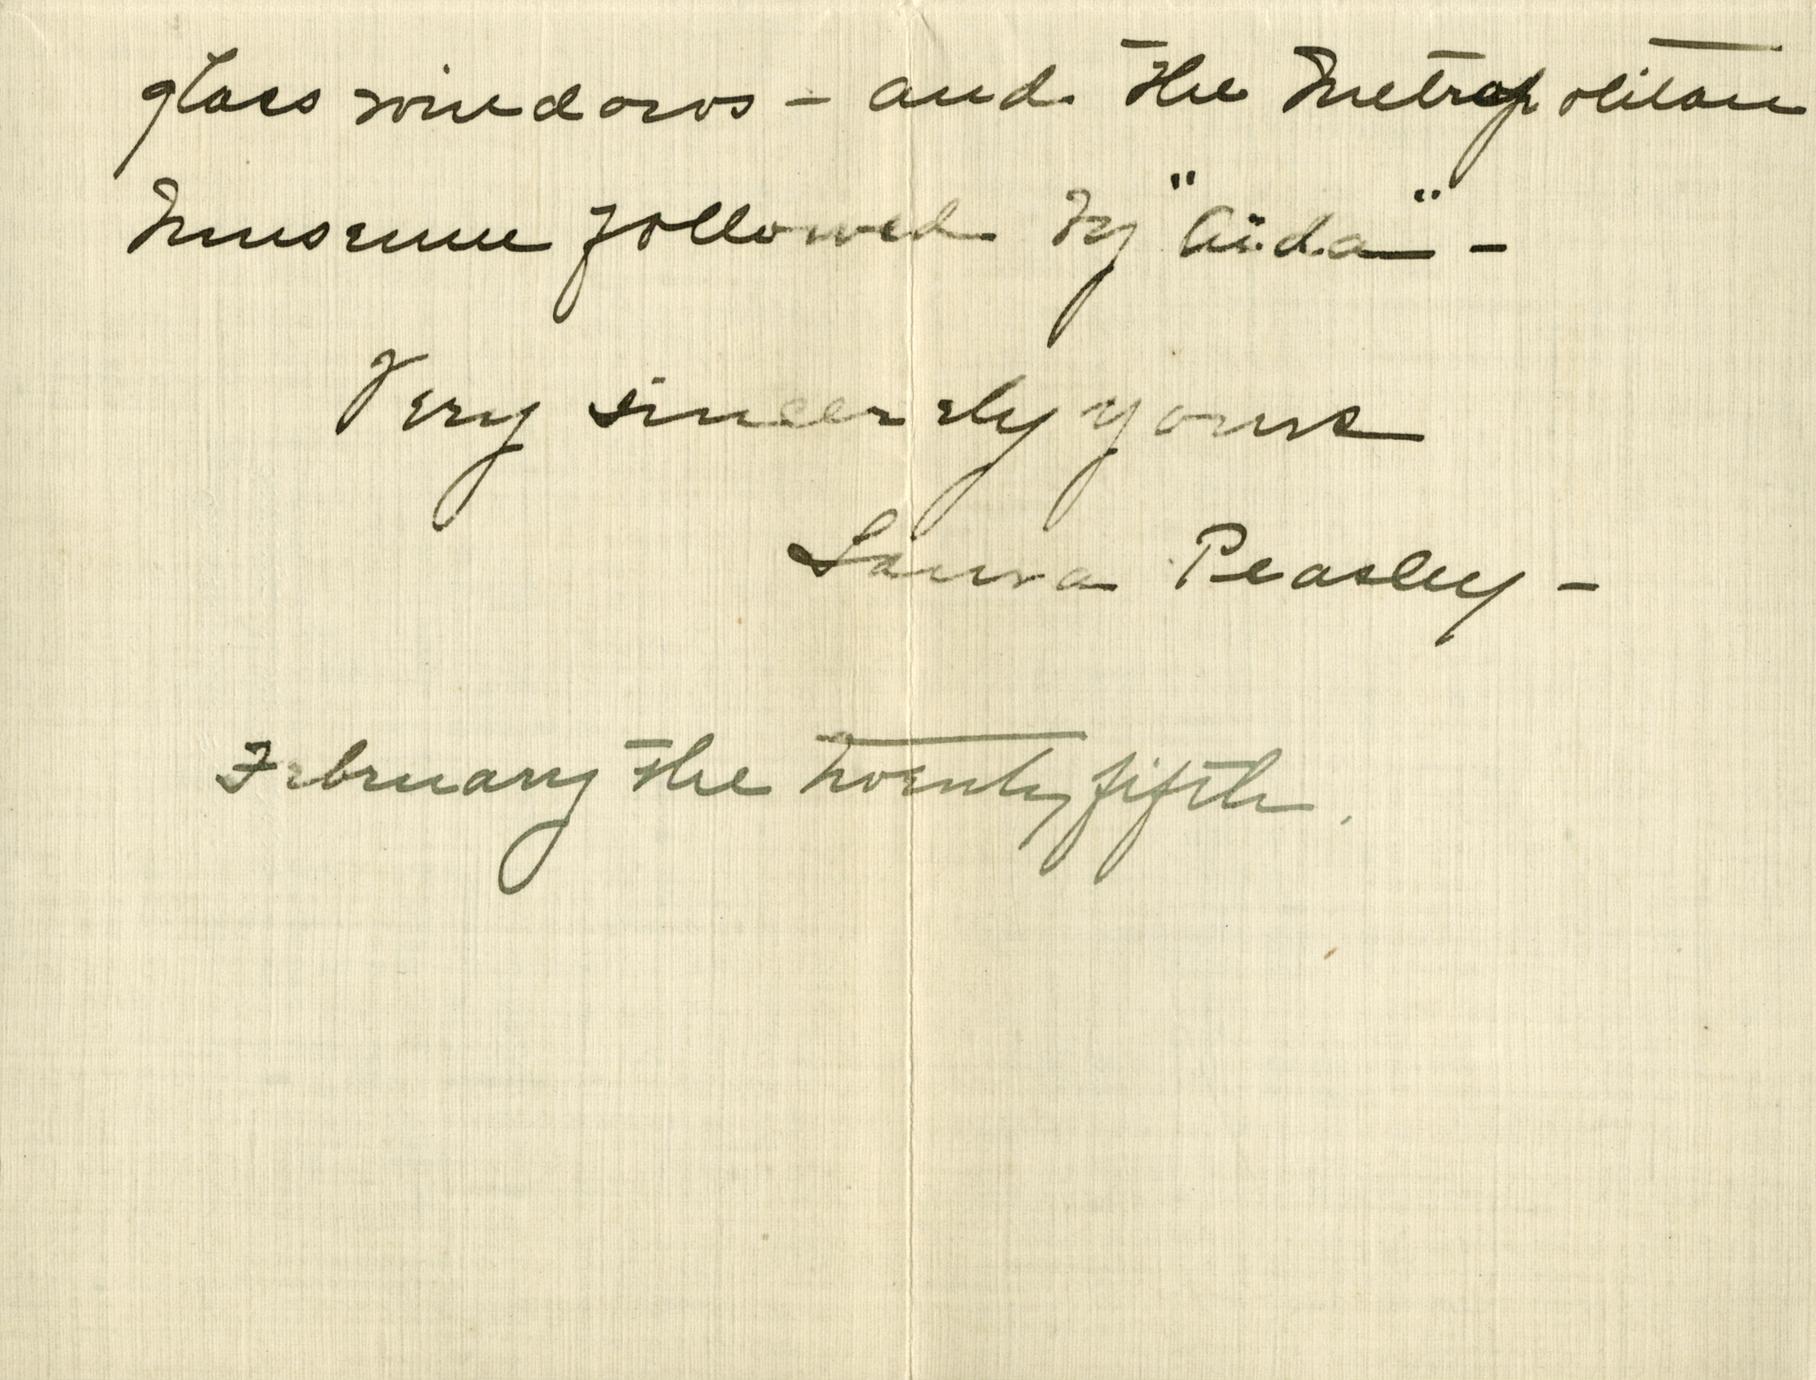 glass windows – and the Metropolitan
Museum followed by "Aïda" –
Very sincerely yours
Laura Peasley –
February the twenty fifth.